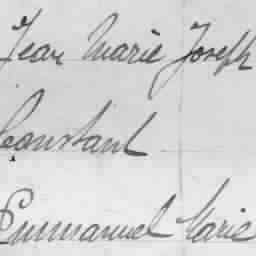 Jean Marie Joseph
Constant
Emmanuel Marie